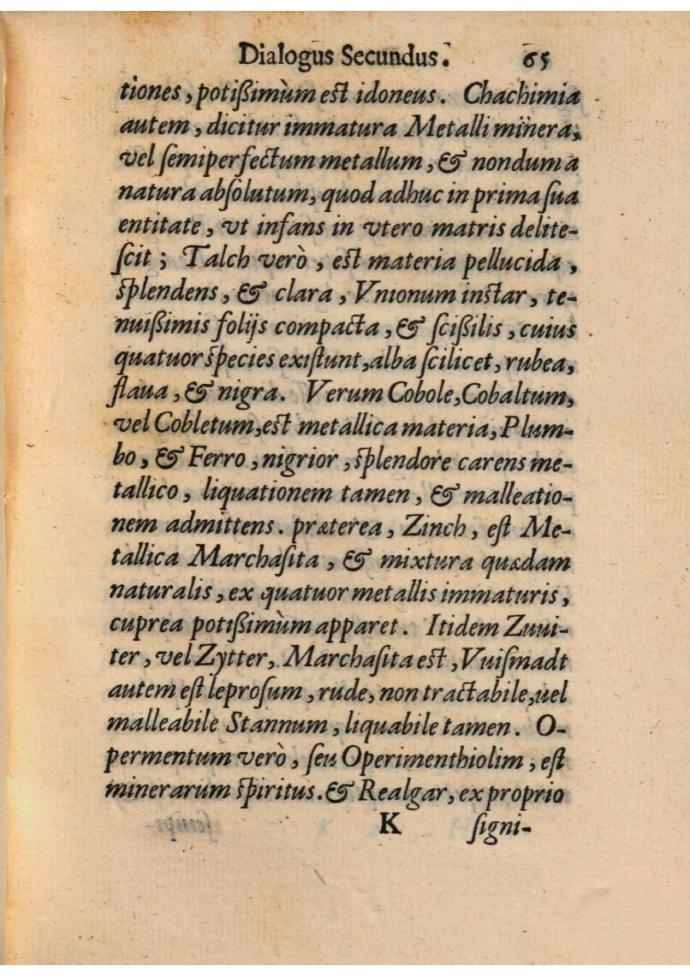 Dialogus Secundus. 65
tiones, potißimùm est idoneus. Chachimia
autem, dicitur immatura Metalli minera,
vel ſemiperfectum metallum, & nondum a
natura abſolutum, quod adhuc in prima ſua
entitate, vt infans in vtero matris delite-
ſcit; Talch verò, est materia pellucida,
ſplendens, & clara, Vnionum inſtar, te-
nuißimis folijs compacta, & ſcißilis, cuius
quatuor ſpecies exiſtunt, alba ſcilicet, rubea,
flaua, & nigra. Verum Cobole, Cobaltum,
vel Cobletum, est metallica materia, Plum-
bo, & Ferro, nigrior, ſplendore carens me-
tallico, liquationem tamen, & malleatio-
nem admittens. præterea, Zinch, eſt Me-
tallica Marchaſita, & mixtura quædam
naturalis, ex quatuor metallis immaturis,
cuprea potißimùm apparet. Itidem Zuui-
ter, vel Zytter, Marchaſita est, Vuiſmadt
autem eſt leproſum, rude, non tractabile, uel
malleabile Stannum, liquabile tamen. O-
permentum verò, ſeu Operimenthiolim, eſt
minerarum ſpiritus. & Realgar, ex proprio
K ſigni-